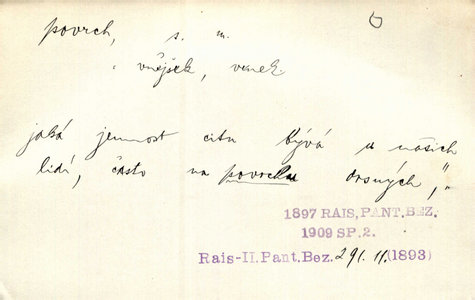 povrch, s. m.
vnějšek, vnek
jaká jemnost citu bývá u našich
lidí, často na povrchu drsných,"
1897 RAIS, PANT. BEZ.
1909 SP. 2.
Rais-II. Pant. Bez. 291. 11. (1893)